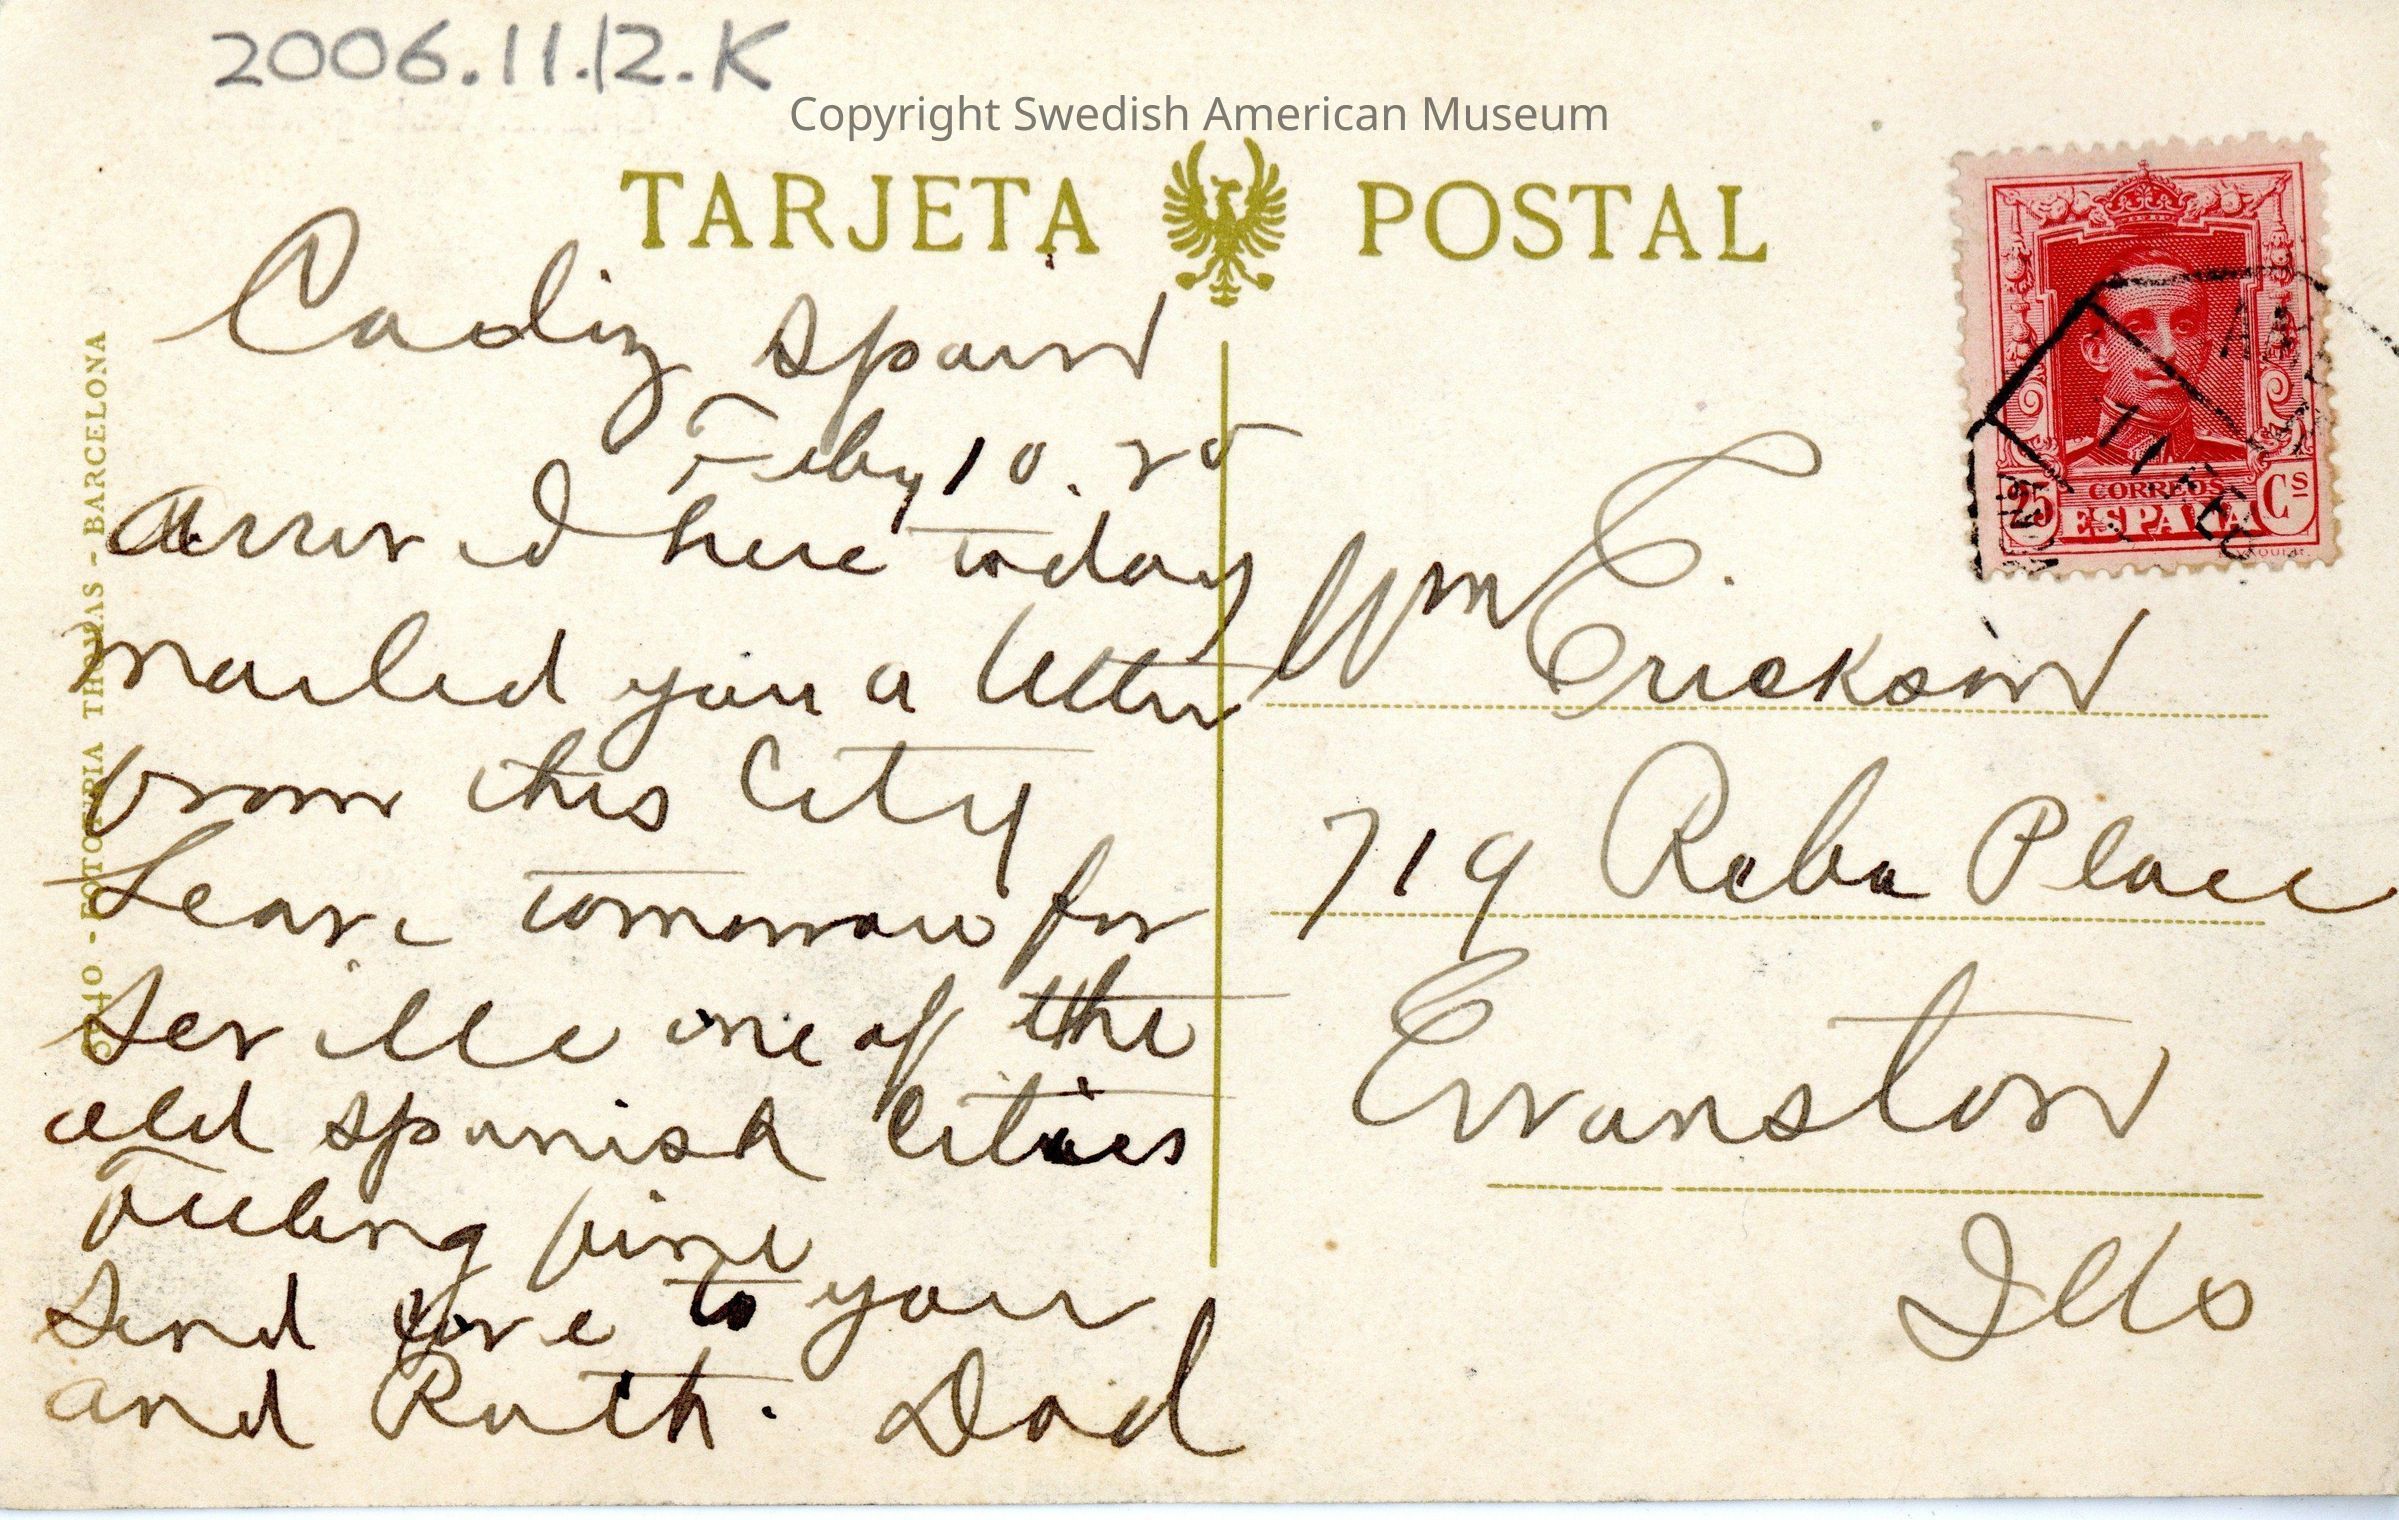 2006.11.12.K
Copyright Swedish American Museum
TARJETA POSTAL
Cadiz Spain
Feby 10. 25
Arrived here today
mailed you a letter
from this City
Leave tomorrow for
Seville one of the
old Spanish Cities
Feeling fine
Send love to you
and Ruth. Dad
Wm E. Erickson
719 Reba Place
Evanston
Ills
25 CORREOS Cs
ESPAÑA
11 FEB
FOTOTIPIA THOMAS - BARCELONA